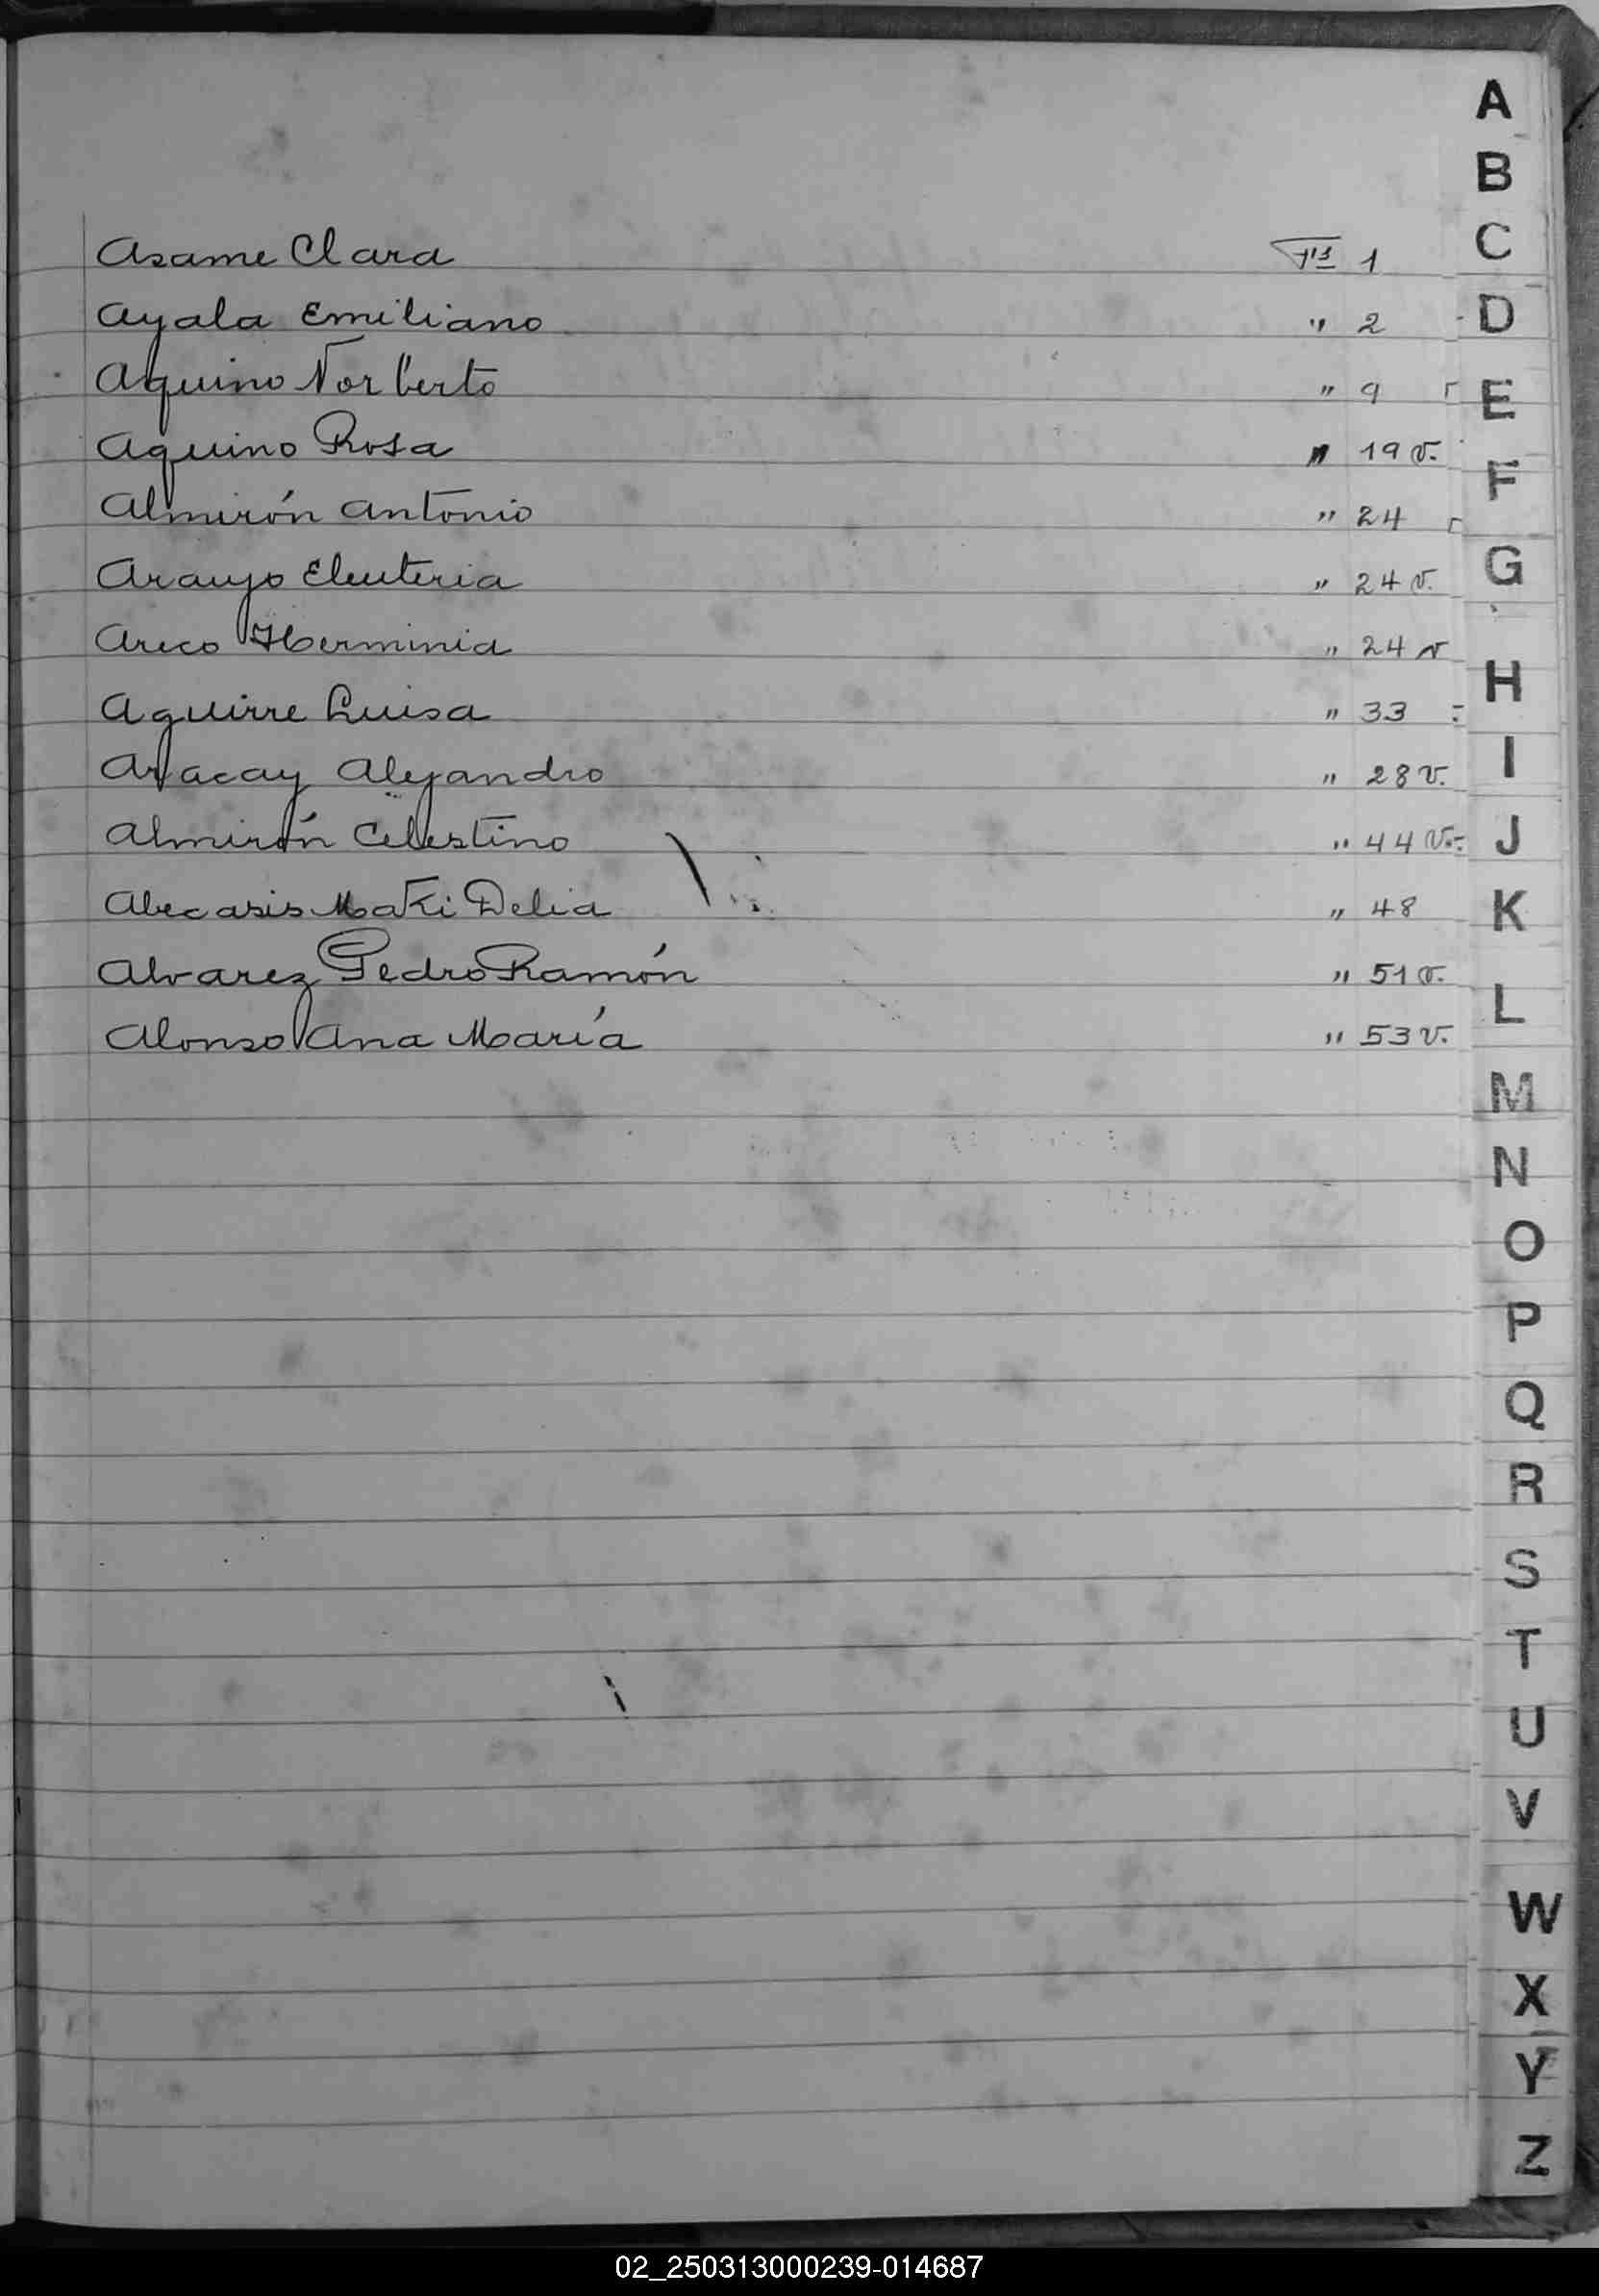 Asame Clara Fls 1
Ayala Emiliano " 2
Aquino Norberto " 9
Aquino Rosa " 19 v.
Almirón Antonio " 24
Araujo Eleuteria " 24 v.
Areco Herminia " 24 v
Aguirre Luisa " 33
Aracay Alejandro " 28 v.
Almirón Celestino " 44 v.
Abecasis Maki Delia " 48
Alvarez Pedro Ramón " 51 v.
Alonso Ana María " 53 v.
A
B
C
D
E
F
G
H
I
J
K
L
M
N
O
P
Q
R
S
T
U
V
W
X
Y
Z
02_250313000239-014687